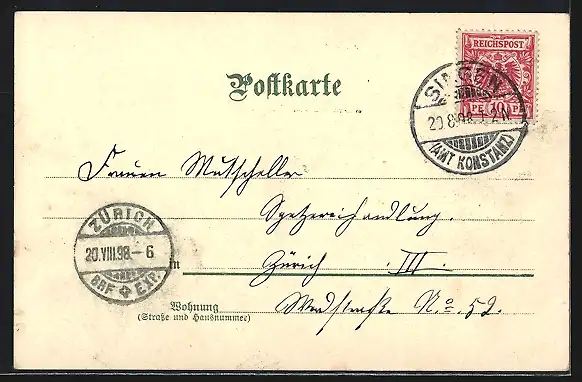 REICHSPOST
10 PF 10 PF
Postkarte
SINGEN
20 8 98 1-2 N
(AMT KONSTANZ)
Frauen Mutscheller
Spezereihandlung.
ZÜRICH
20.VIII.98.-6
BRF EXP.
in Zürich III.
Wohnung
(Straße und Hausnummer)
No. 52.